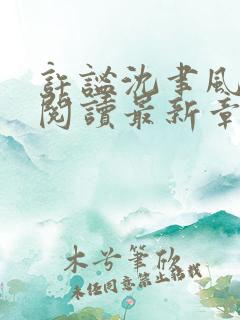 許謐沈聿風
閱讀最新章
木兮筆欣
未经同意禁止转载